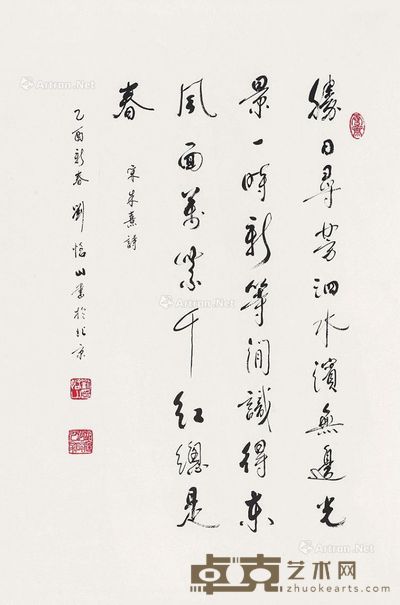 勝日尋芳泗水濱無邊光
景一時新等閒識得東
風面萬紫千紅總是
春
宋朱熹詩
乙酉新春劉恪山書於北京
卓克艺术网
zhuokearts.com
Artron.Net
Artron.Net
Artron.Net
Artron.Net
Artron.Net